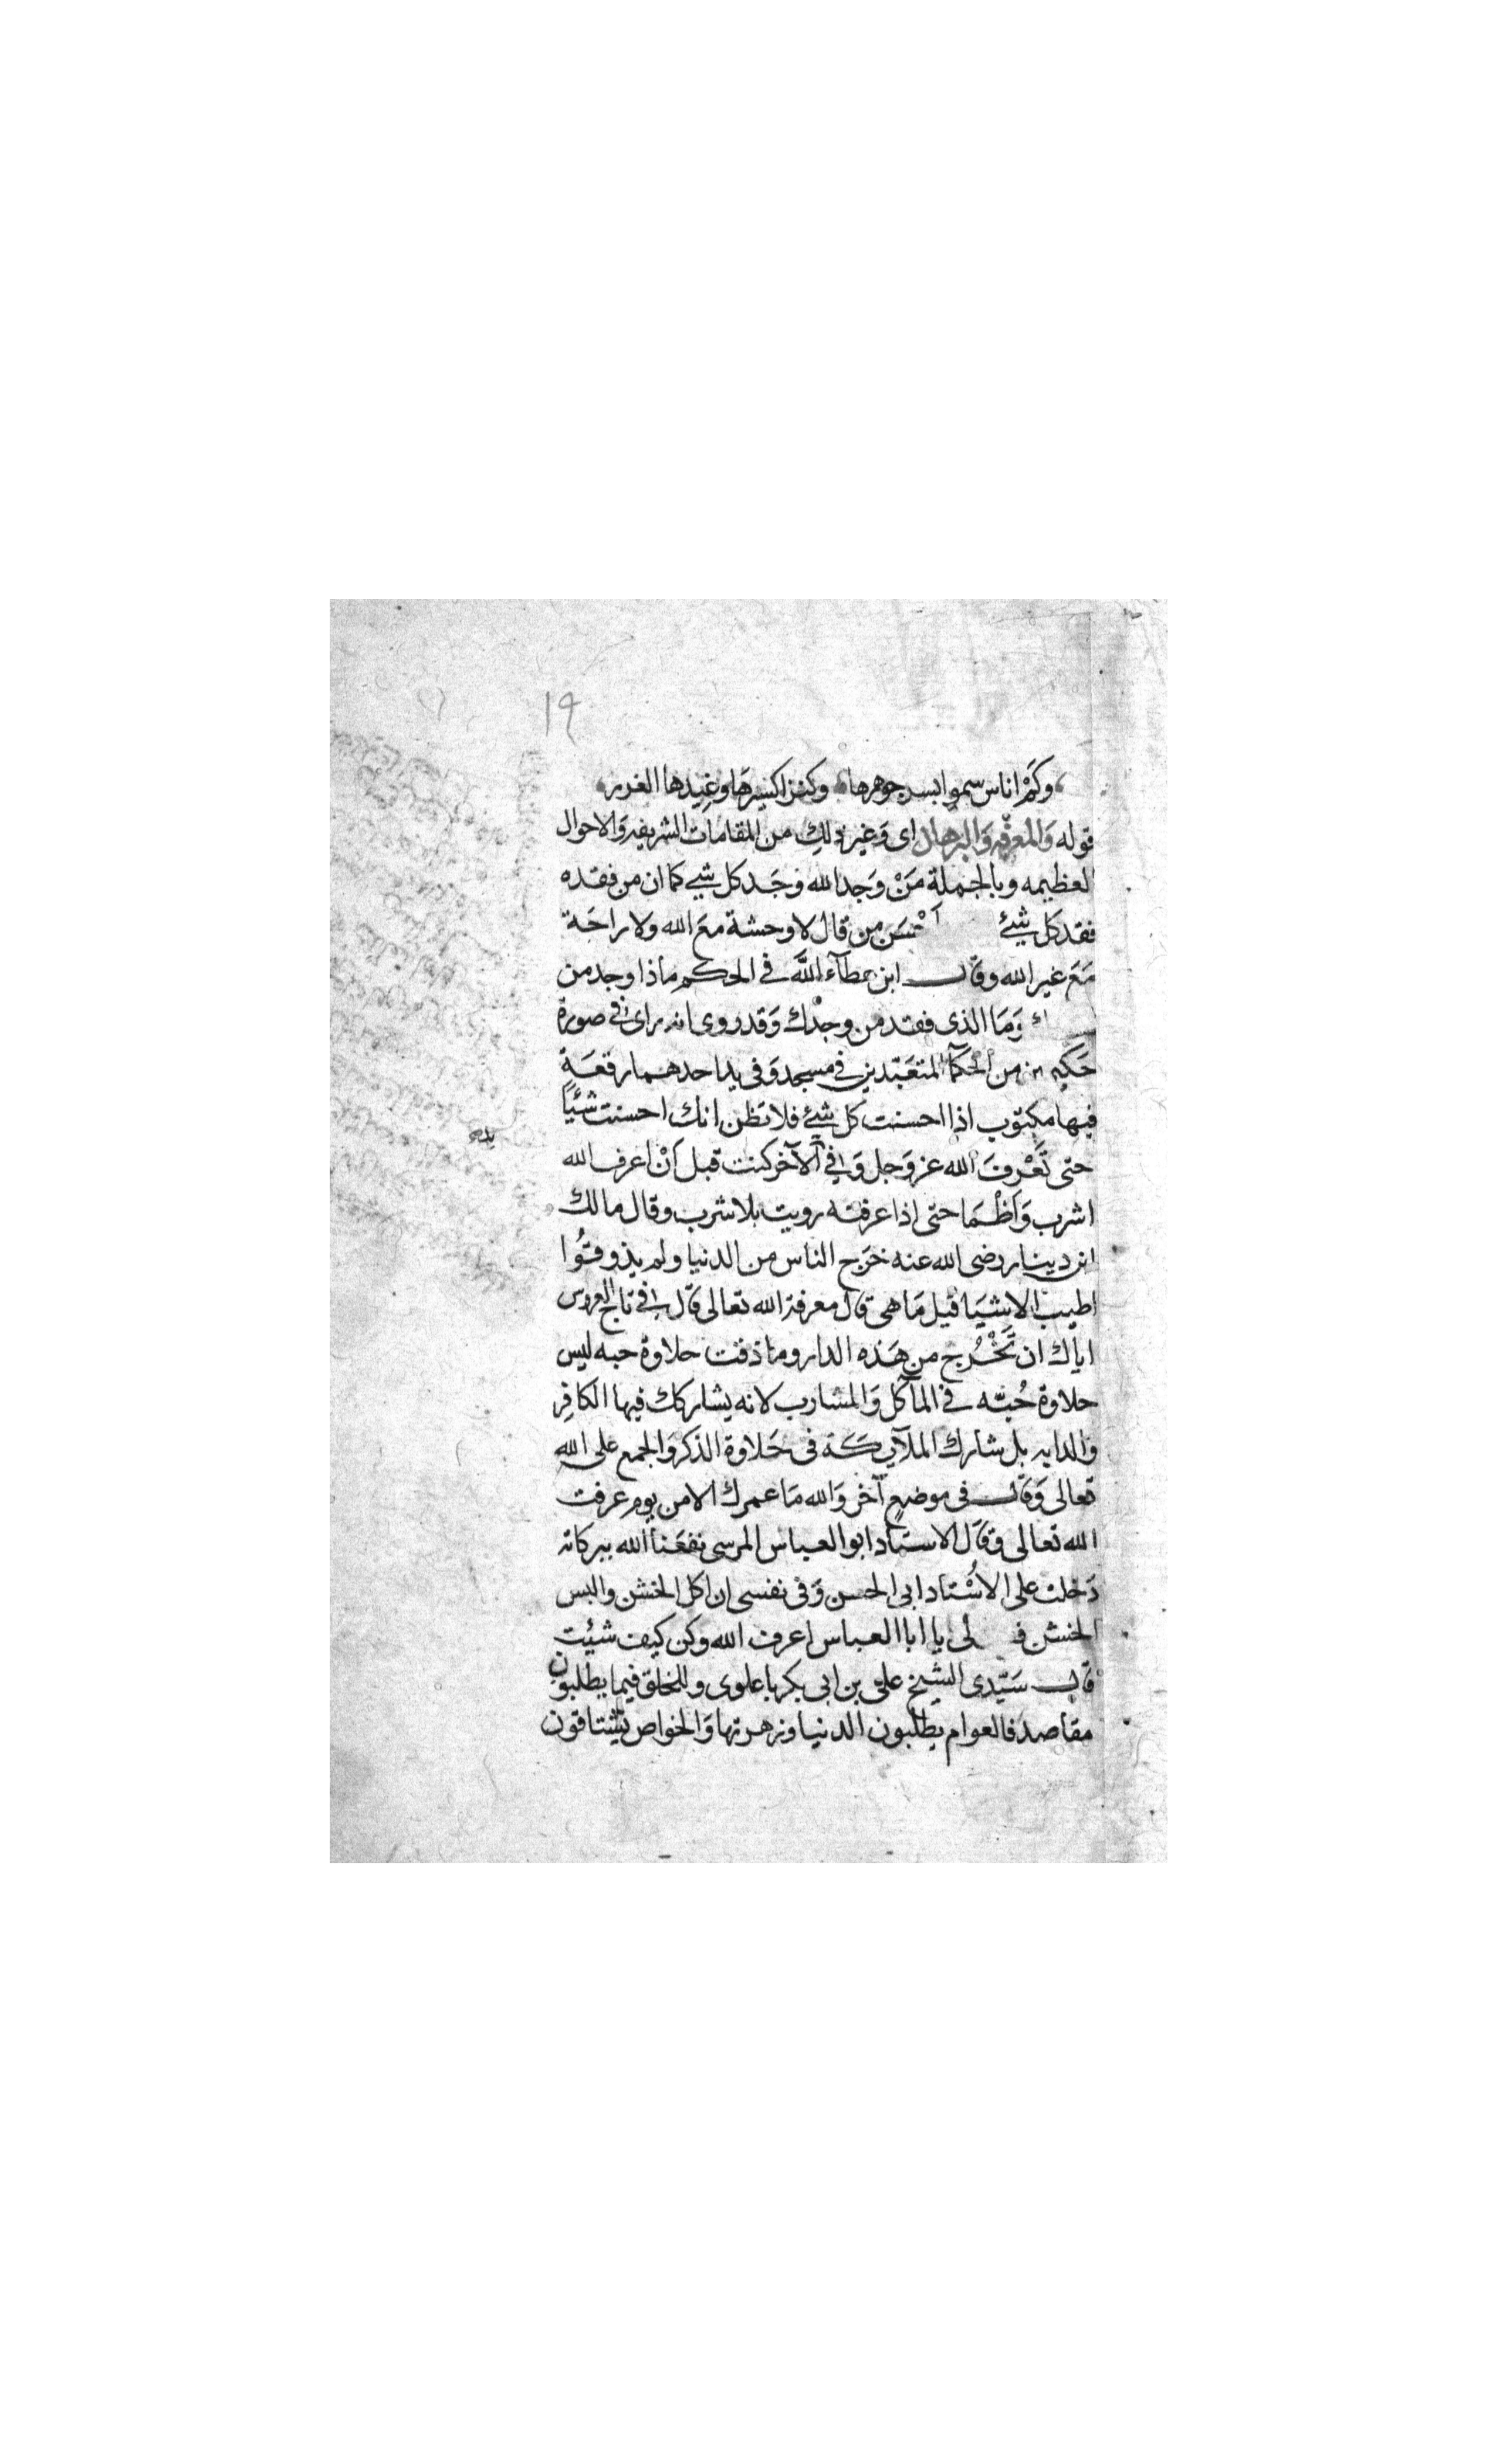 ١٩
وكَمْ اناس سموا بسر جوهرها وكنز اكسيرها وغيدها الغرر
قوله وَالمعرفه وَالبرهان اى وَغير ذلك من المقامات الشريفه وَالاحوال
العظيمه وبالجملة مَنْ وَجد الله وَجَد كل شيء كما ان من فقده
فقد كل شئ احْسَن من قال لا وحشة معَ الله ولا راحَة
مَعَ غير الله وقال ابن عطآء اللَّه في الحكم ماذا وجد من
وَمَا الذى فقد من وجدْك وَقد روى انه راى في صورة
حَكيم من الحكمآ المتعَبّدين في مسجد وَفى يد احدهما رقعَةٍ
فيها مكتوب اذا احسنت كل شئ فلا تظن انك احسنت شئياً
حتى تَعْرفَ الله عز وَجل وَفي الآخر كنت قبل اَنْ اعرف الله
اشرب وَاَظْمَا حتى اذا عرفته رويت بلا شرب وقال مالك
ابن دينار رضى الله عنه خرَج الناس من الدنيا ولم يذوقُوا
اطيب الاشيَا قيل مَا هى قال معرفة الله تعالى قَال في تاج العروس
اياك ان تَخْرُج من هَذه الدار وما ذقت حلاوة حبه ليس
حلاوة حُبّه في المآكل وَالمشارب لانه يشاركك فيها الكافِر
وَالدابه بل شارك الملآيكَة فى حَلاوة الذكر وَالجمع على الله
تعالى وَقال فى موضعٍ آخر وَالله مَا عمرك الا من يوم عرفت
الله تعالى وقَال الاستاد ابو العباس المرسى نفعَنا الله ببركاته
دَخلت على الاُسْتاد ابى الحسن وَفى نفسى ان اكل الخشن والبس
الخشن ف لى يا ابا العباس اعرف الله وكن كيف شيئت
قال سَيّدى الشيخ على بن ابى بكر باعلوى وللخلق فيما يطلبون
مقاصد فالعوام يطلبون الدنيا وزهرتها وَالخواص يشتاقون